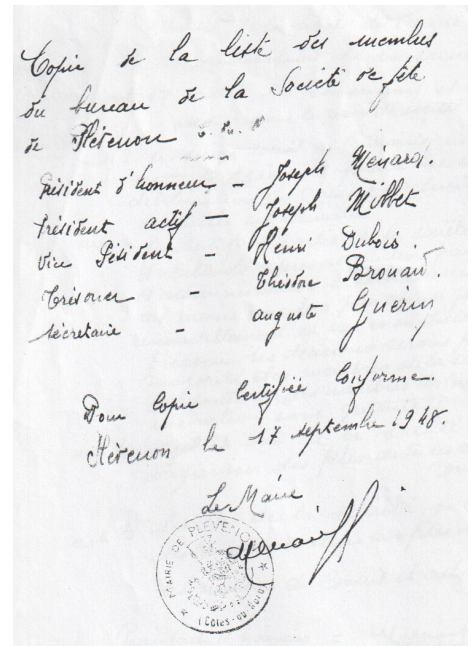 Copie de la liste des membres
du bureau de la Société de fête
de Plévenon
Président d'honneur - Joseph Ménard.
Président actif - Joseph Millet
Vice Président - Henri Dubois.
Trésorier - Théodore Brouard.
Secrétaire - auguste Guérin
Pour copie certifiée conforme.
Plévenon le 17 septembre 1948.
Le Maire
MAIRIE DE PLEVENON
(Côtes-du-Nord)